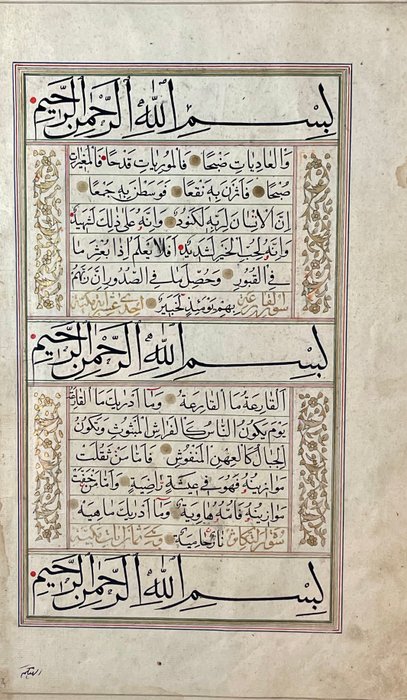 بِسْمِ اللهِ الرَّحْمٰنِ الرَّحِيْمِ
وَالْعَادِيَاتِ ضَبْحًا فَالْمُورِيَاتِ قَدْحًا فَالْمُغِيرَاتِ
صُبْحًا فَاَثَرْنَ بِهِ نَقْعًا فَوَسَطْنَ بِهِ جَمْعًا
اِنَّ الْاِنْسَانَ لِرَبِّهِ لَكَنُودٌ وَاِنَّهُ عَلٰى ذٰلِكَ لَشَهِيدٌ
وَاِنَّهُ لِحُبِّ الْخَيْرِ لَشَدِيدٌ اَفَلَا يَعْلَمُ اِذَا بُعْثِرَ مَا
فِي الْقُبُورِ وَحُصِّلَ مَا فِي الصُّدُورِ اِنَّ رَبَّهُمْ
سورة القارعة بِهِمْ يَوْمَئِذٍ لَخَبِيرٌ احدى عشرة آية مكية
بِسْمِ اللهِ الرَّحْمٰنِ الرَّحِيْمِ
اَلْقَارِعَةُ مَا الْقَارِعَةُ وَمَا اَدْرٰيكَ مَا الْقَارِعَةُ
يَوْمَ يَكُونُ النَّاسُ كَالْفَرَاشِ الْمَبْثُوثِ وَتَكُونُ
الْجِبَالُ كَالْعِهْنِ الْمَنْفُوشِ فَاَمَّا مَنْ ثَقُلَتْ
مَوَازِينُهُ فَهُوَ فِي عِيشَةٍ رَاضِيَةٍ وَاَمَّا مَنْ خَفَّتْ
مَوَازِينُهُ فَاُمُّهُ هَاوِيَةٌ وَمَا اَدْرٰيكَ مَا هِيَهْ
سورة التكاثر نَارٌ حَامِيَةٌ وهي ثمان آيات مكية
بِسْمِ اللهِ الرَّحْمٰنِ الرَّحِيْمِ
الهيكم